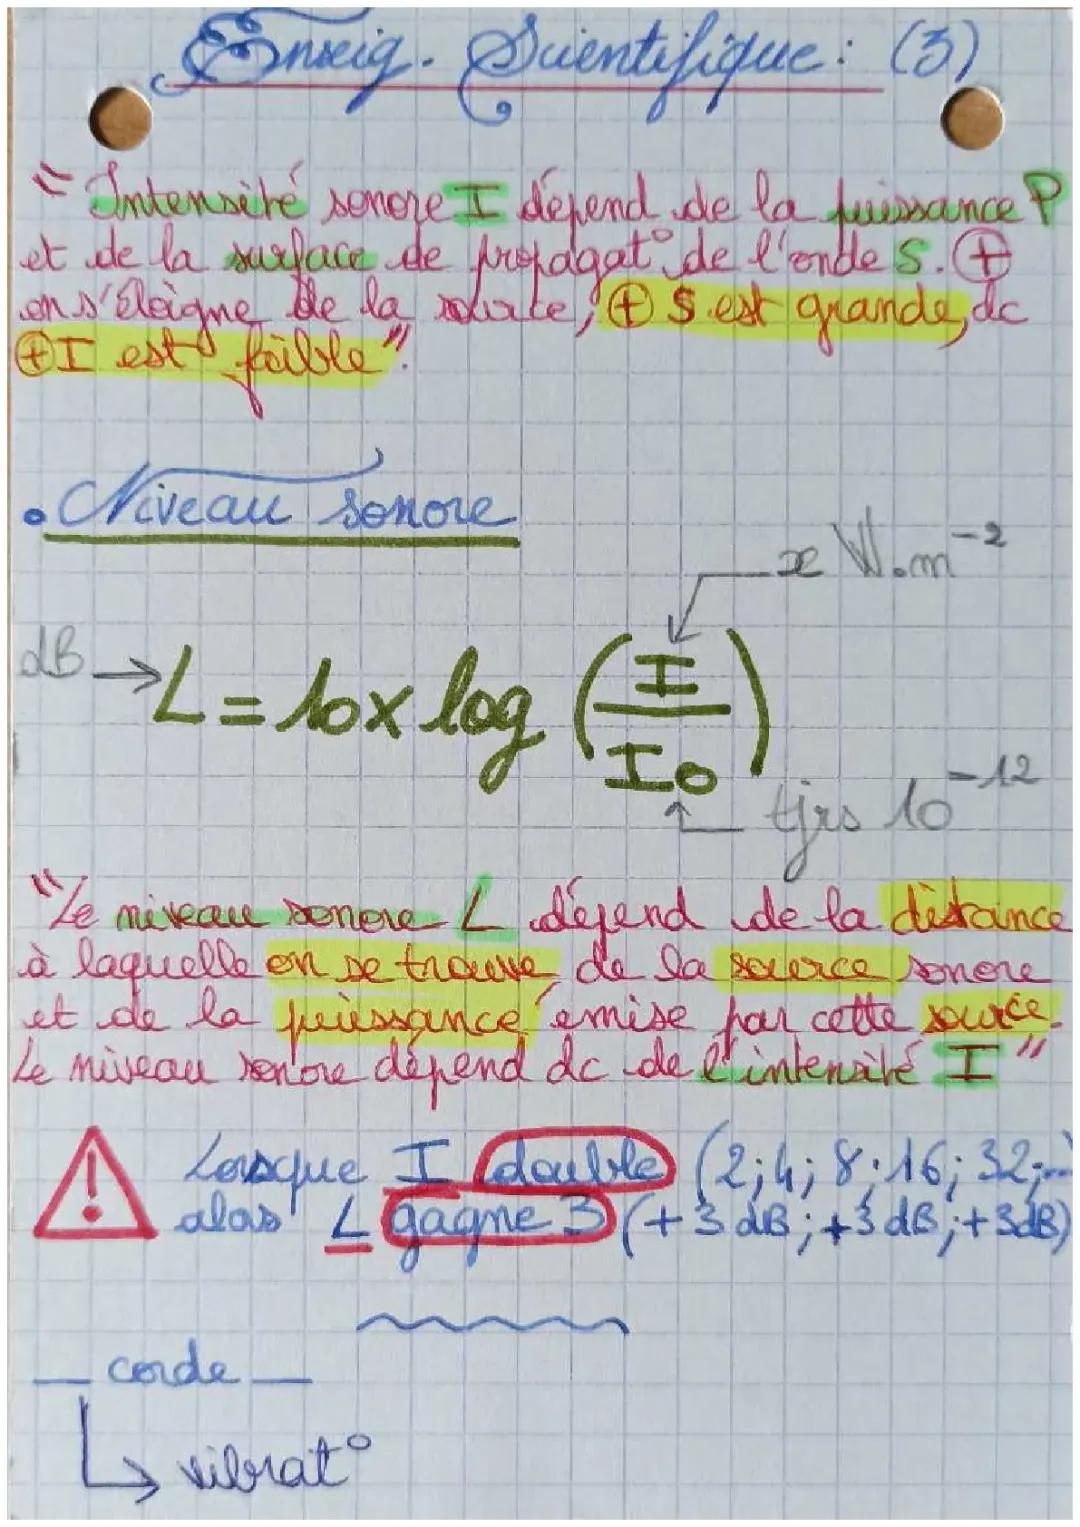 Enseig. Scientifique : (3)
"Intensité sonore I dépend de la puissance P
et de la surface de propagat° de l'onde S. ⊕
on s'éloigne de la source, ⊕ S est grande, dc
⊕ I est faible".
• Niveau sonore
x W.m⁻²
dB → L = 10 x log (I / I₀)
tjrs 10⁻¹²
"Le niveau sonore L dépend de la distance
à laquelle on se trouve de la source sonore
et de la puissance émise par cette source.
Le niveau sonore dépend dc de l'intensité I"
! Lorsque I double (2; 4; 8; 16; 32;...
alos L gagne 3 (+ 3 dB; +3 dB; +3dB)
_ corde _
↳ vibrat°